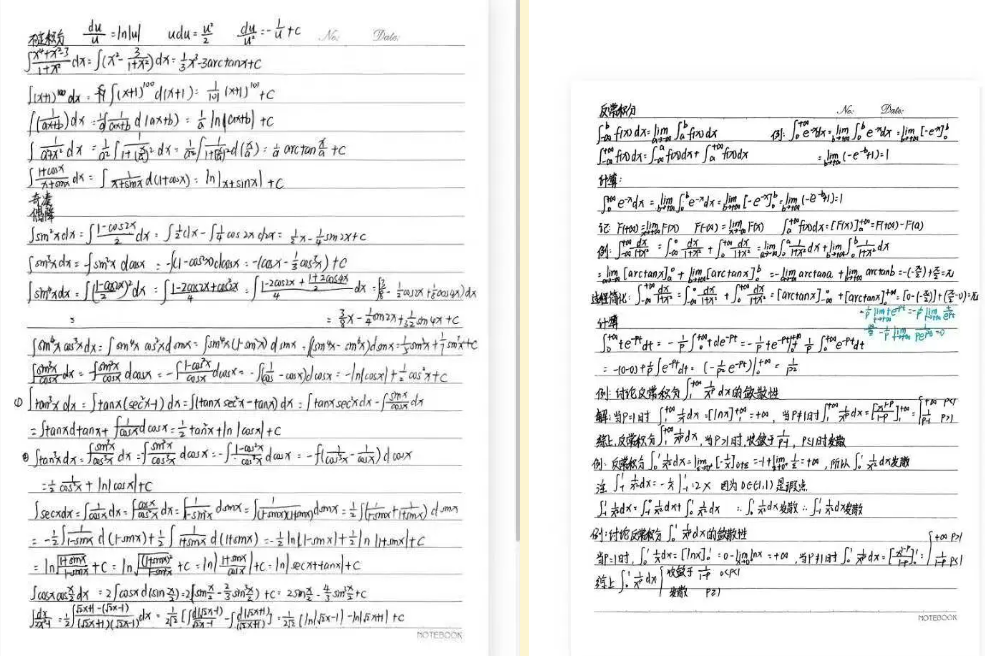 不定积分 du/u = ln|u| udu = u²/2 du/u² = -1/u + c No: Date:
∫(x⁴+x²-3)/(1+x²) dx = ∫(x² - 3/(1+x²)) dx = 1/3 x³ - 3arctanx + C
∫(x+1)¹⁰⁰ dx = ∫(x+1)¹⁰⁰ d(x+1) = 1/101 (x+1)¹⁰¹ + C
∫(1/(ax+b)) dx = 1/a ∫ 1/(ax+b) d(ax+b) = 1/a ln|ax+b| + C
∫ 1/(a²+x²) dx = 1/a² ∫ 1/(1+(x/a)²) dx = 1/a ∫ 1/(1+(x/a)²) d(x/a) = 1/a arctan x/a + C
∫ (1+cosx)/(x+sinx) dx = ∫ 1/(x+sinx) d(x+sinx) = ln|x+sinx| + C
奇凑
偶降
∫sin²x dx = ∫(1-cos2x)/2 dx = ∫1/2 dx - ∫1/4 cos2x d2x = 1/2 x - 1/4 sin2x + C
∫sin³x dx = -∫sin²x dcosx = -∫(1-cos²x) dcosx = -(cosx - 1/3 cos³x) + C
∫sin⁴x dx = ∫((1-cos2x)/2)² dx = ∫(1-2cos2x+cos²2x)/4 = ∫(1-2cos2x + (1+cos4x)/2)/4 dx = ∫(3/8 - 1/2 cos2x + 1/8 cos4x) dx
= = 3/8 x - 1/4 sin2x + 1/32 sin4x + C
∫sin⁴x cos³x dx = ∫sin⁴x cos²x dsinx = ∫sin⁴x(1-sin²x) dsinx = ∫(sin⁴x - sin⁶x) dsinx = 1/5 sin⁵x + 1/7 sin⁷x + C
∫ sin³x/cosx dx = -∫ sin²x/cosx dcosx = -∫ (1-cos²x)/cosx dcosx = -∫(1/cosx - cosx) dcosx = -ln|cosx| + 1/2 cos²x + C
① ∫tan³x dx = ∫tanx(sec²x-1) dx = ∫(tanx sec²x - tanx) dx = ∫tanx sec²x dx - ∫ sinx/cosx dx
= ∫tanx dtanx + ∫ 1/cosx dcosx = 1/2 tan²x + ln|cosx| + C
② ∫tan³x dx = ∫ sin³x/cos³x dx = -∫ sin²x/cos³x dcosx = -∫ (1-cos²x)/cos³x dcosx = -∫(1/cos³x - 1/cosx) dcosx
= 1/2 1/cos²x + ln|cosx| + C
∫secx dx = ∫ 1/cosx dx = ∫ cosx/cos²x dx = ∫ 1/(1-sin²x) dsinx = ∫ 1/((1-sinx)(1+sinx)) dsinx = 1/2 ∫(1/(1-sinx) + 1/(1+sinx)) dsinx
= -1/2 ∫ 1/(1-sinx) d(1-sinx) + 1/2 ∫ 1/(1+sinx) d(1+sinx) = -1/2 ln|1-sinx| + 1/2 ln|1+sinx| + C
= ln√((1+sinx)/(1-sinx)) + C = ln√((1+sinx)²/(1-sin²x)) + C = ln|(1+sinx)/cosx| + C = ln|secx+tanx| + C
∫cosx cos x/2 dx = 2∫cosx d(sin x/2) = 2(sin x/2 - 2/3 sin³ x/2) + C = 2sin x/2 - 4/3 sin³ x/2 + C
∫ dx/(2x²-1) = 1/2 ∫ ((√2x+1)-(√2x-1))/((√2x+1)(√2x-1)) dx = 1/(2√2) [∫ d(√2x-1)/(√2x-1) - ∫ d(√2x+1)/(√2x+1)] = 1/(2√2) (ln|√2x-1| - ln|√2x+1|) + C
NOTEBOOK
反常积分 No: Date:
∫₋∞^b f(x) dx = lim(a→-∞) ∫ₐ^b f(x) dx 例: ∫₀^+∞ e⁻ˣ dx = lim(b→+∞) ∫₀^b e⁻ˣ dx = lim(b→+∞) [-e⁻ˣ]₀^b
∫₋∞^+∞ f(x) dx = ∫₋∞^a f(x) dx + ∫ₐ^+∞ f(x) dx = lim(b→+∞) (-e^-b + 1) = 1
计算:
∫₀^+∞ e⁻ˣ dx = lim(b→+∞) ∫₀^b e⁻ˣ dx = lim(b→+∞) [-e⁻ˣ]₀^b = lim(b→+∞) (-e^-b + 1) = 1
记 F(+∞) = lim(x→+∞) F(x) F(-∞) = lim(x→-∞) F(x) ∫ₐ^+∞ f(x) dx = [F(x)]ₐ^+∞ = F(+∞) - F(a)
例: ∫₋∞^+∞ dx/(1+x²) = ∫₋∞^0 dx/(1+x²) + ∫₀^+∞ dx/(1+x²) = lim(a→-∞) ∫ₐ^0 1/(1+x²) dx + lim(b→+∞) ∫₀^b 1/(1+x²) dx
= lim(a→-∞) [arctanx]ₐ^0 + lim(b→+∞) [arctanx]₀^b = -lim(a→-∞) arctana + lim(b→+∞) arctanb = -(-π/2) + π/2 = π
过程简化: ∫₋∞^+∞ dx/(1+x²) = ∫₋∞^0 dx/(1+x²) + ∫₀^+∞ dx/(1+x²) = [arctanx]₋∞^0 + [arctanx]₀^+∞ = [0-(-π/2)] + (π/2-0) = π
计算
∫₀^+∞ te^-pt dt = -1/p ∫₀^+∞ t de^-pt = -1/p te^-pt |₀^+∞ + 1/p ∫₀^+∞ e^-pt dt
= -(0-0) + 1/p ∫ e^-pt dt = (-1/p² e^-pt) |₀^+∞ = 1/p²
例: 讨论反常积分 ∫₁^+∞ 1/xᵖ dx 的敛散性
解: 当P=1时 ∫₁^+∞ 1/x dx = [lnx]₁^+∞ = +∞, 当P≠1时 ∫₁^+∞ 1/xᵖ dx = [x^(1-p)/(1-p)]₁^+∞ = { +∞ P<1, 1/(p-1) P>1
综上, 反常积分 ∫₁^+∞ 1/xᵖ dx, 当P>1时, 收敛于 1/(p-1), P≤1时发散
例: 反常积分 ∫₀^1 1/x² dx = lim [-1/x] = -1 + lim 1/x = +∞, 所以 ∫₀^1 1/x² dx发散
注 ∫₋₁^1 1/x² dx = -1/x |₋₁^1 = -2 × 因为 0∈(-1,1) 是瑕点
∫₋₁^1 1/x² dx = ∫₋₁^0 1/x² dx + ∫₀^1 1/x² dx ∵ ∫₀^1 1/x² dx发散 ∴ ∫₋₁^1 1/x² dx发散
例: 讨论反常积分 ∫₀^1 1/xᵖ dx的敛散性
当P=1时, ∫₀^1 1/x dx = [lnx]₀^1 = 0 - lim lnx = +∞, 当P≠1时 ∫₀^1 1/xᵖ dx = [x^(1-p)/(1-p)]₀^1 = { +∞ P>1, 1/(1-p) P<1
综上 ∫₀^1 1/xᵖ dx { 收敛于 1/(1-p) 0<P<1
发散 P≥1
NOTEBOOK